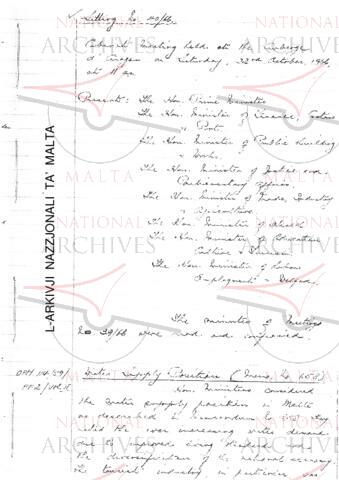 Sitting No. 40/66.
Cabinet Meeting held at the Auberge
d'Aragon on Saturday, 22nd October, 1966,
at 11 am.
Present: The Hon. Prime Minister
The Hon. Minister of Finance, Customs
& Port
The Hon. Minister of Public Building
& Works.
The Hon. Minister of Justice and
Parliamentary Affairs.
The Hon. Minister of Trade, Industry
& Agriculture.
The Hon. Minister of Health
The Hon. Minister of Education
Culture & Tourism
The Hon. Minister of Labour
Employment & Welfare.
The minutes of Meeting
No 39/66 were read and
OPM 114/59/
Water Supply Position (Memo. No. 658)
Hon. Ministers considered
the water supply position in Malta
as described in Memorandum No 658. They
noted the ever increasing water demand
due to improved living standards and
the diversification of the national economy.
The tourist industry in particular was
L-ARKIVJI NAZZJONALI TA' MALTA
NATIONAL
ARCHIVES
MALTA